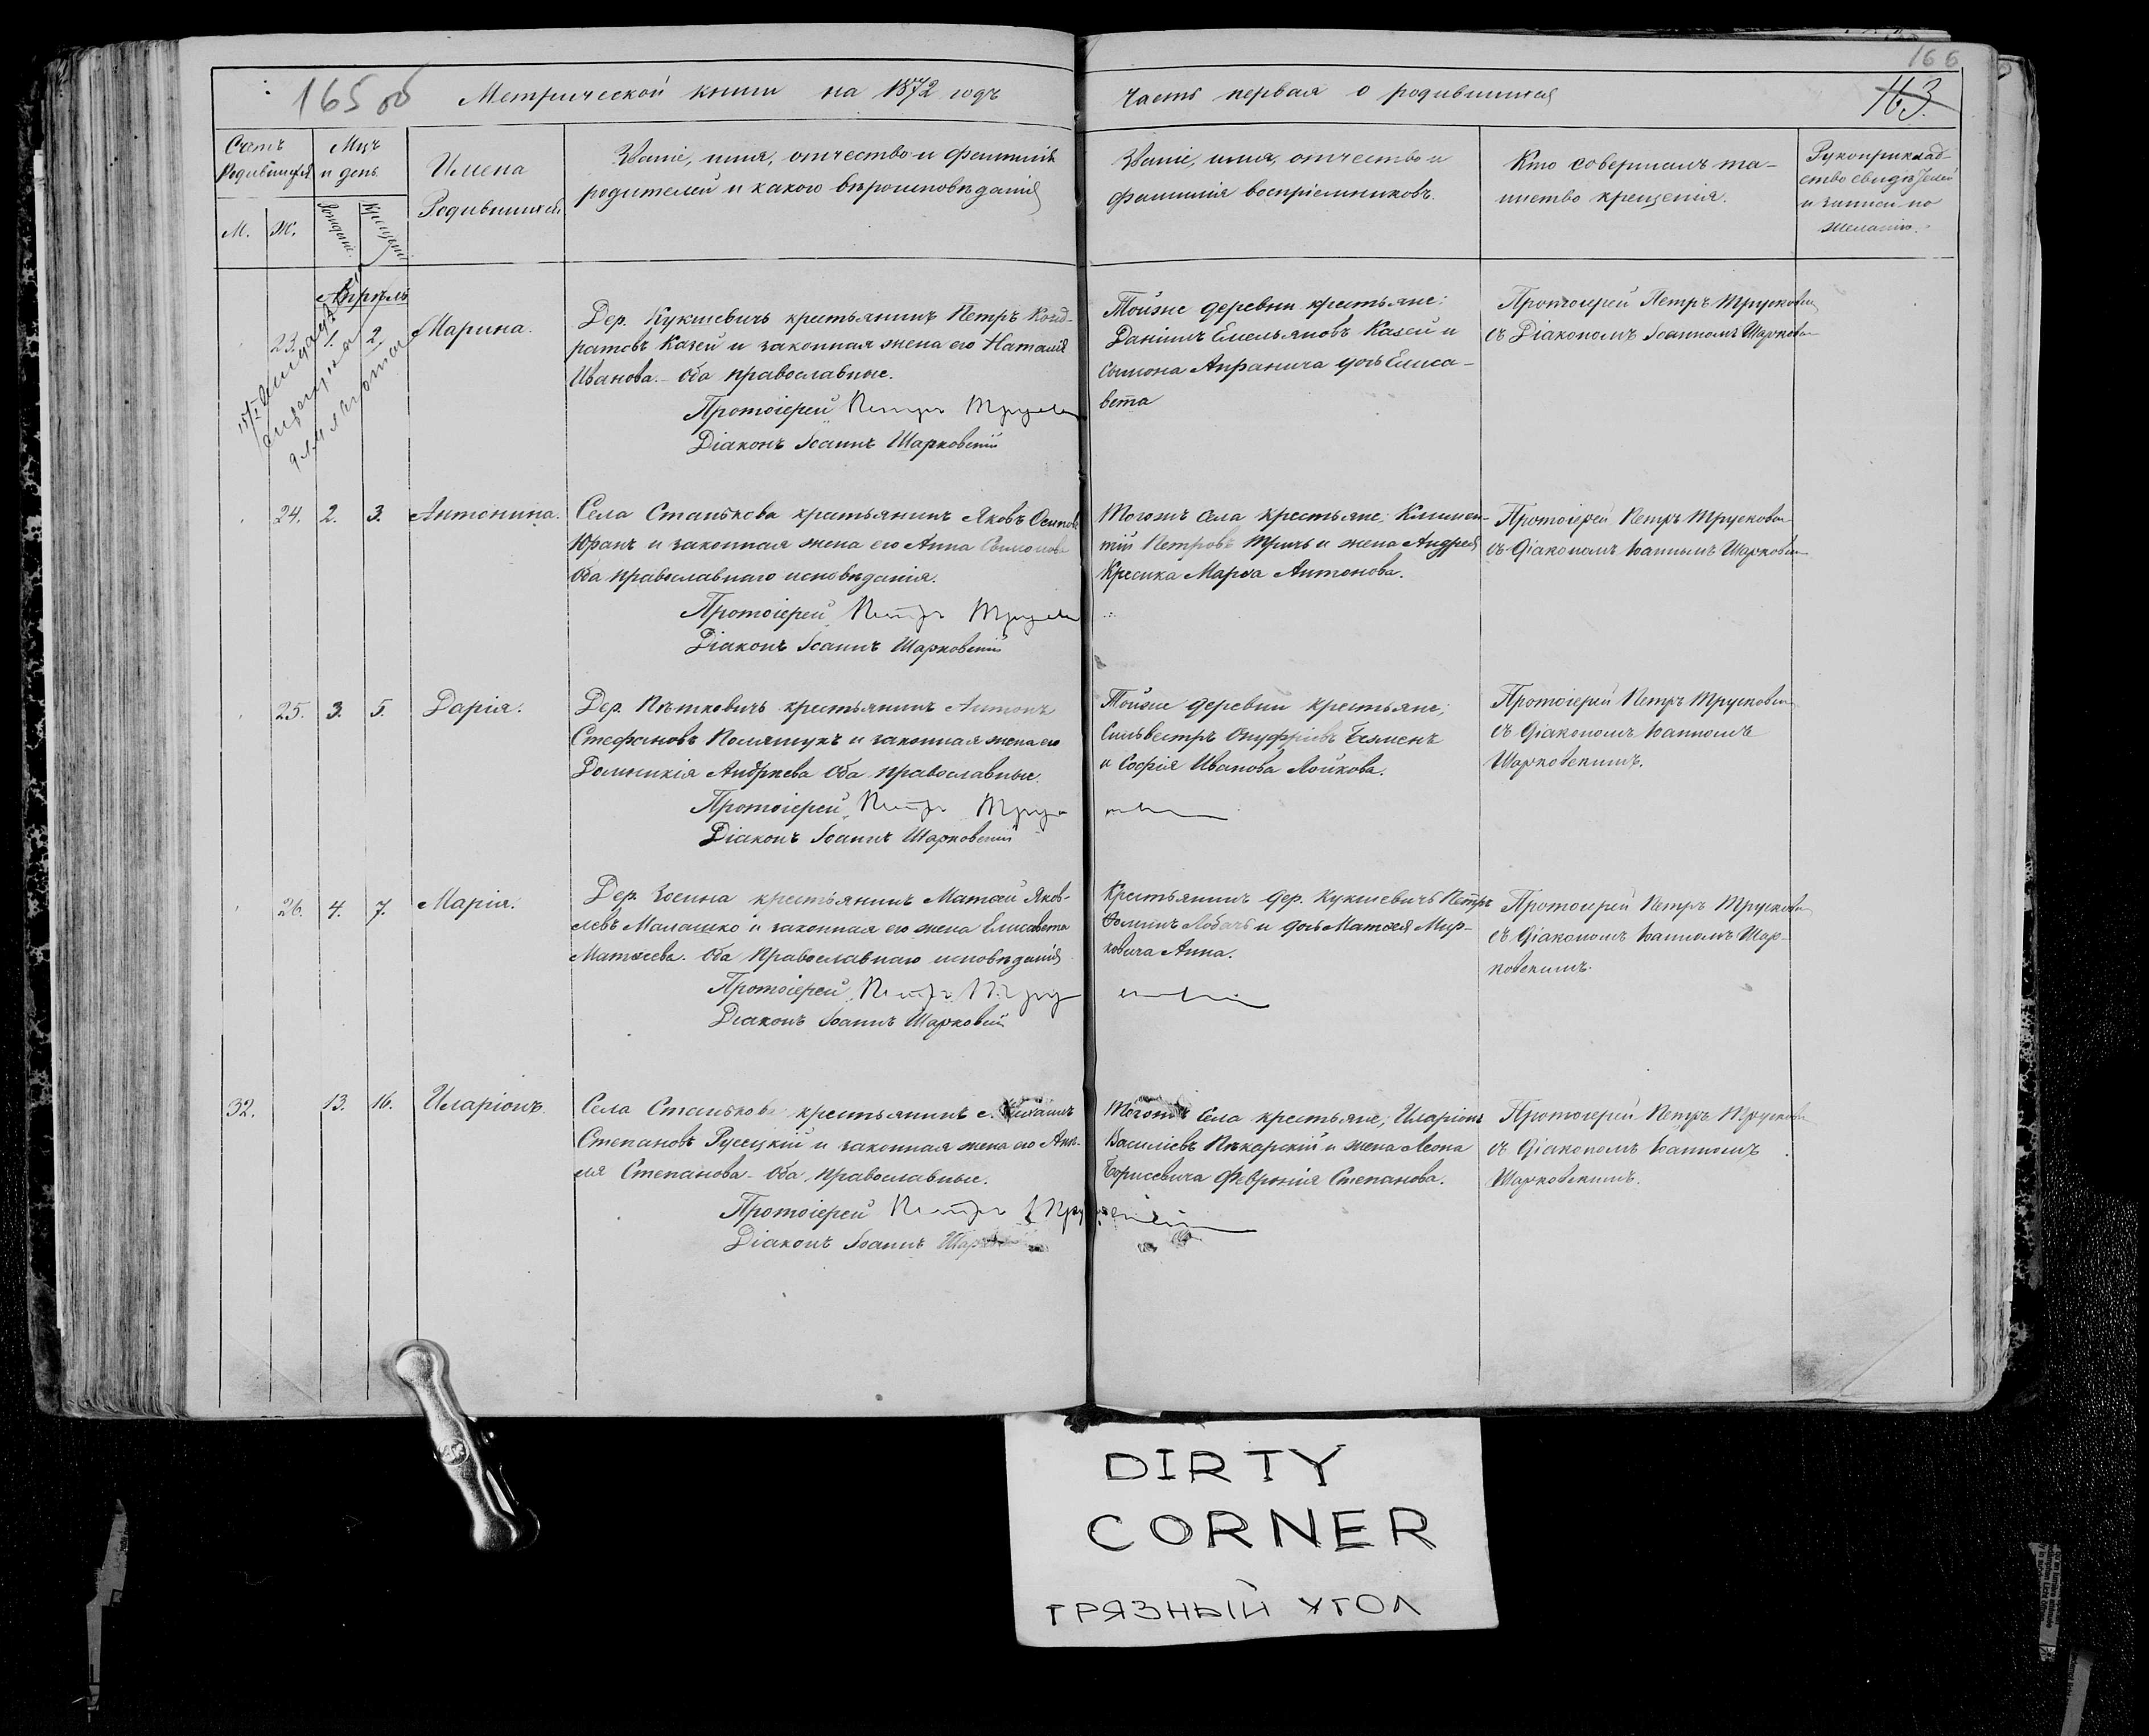 165 об Метрической книги на 1872 годъ
Часть первая о родившихся
166
163.
Счетъ Родившихся
Мцъ и день
М.
Ж.
Рожденія.
Крещенія
Имена
Родившихся
Званіе, имя, отчество и фамилія
родителей и какого вѣроисповѣданія
Званіе, имя, отчество и
фамилія воспріемниковъ.
Кто совершалъ та-
инство крещенія.
Рукоприклад-
ство свидѣтелей
о записи по
желанію.
Апрѣль
23. 1. 2. Марина.
Дер. Кукшевичъ крестьянинъ Петръ Конд-
ратовъ Казей и законная жена его Наталія
Иванова. Оба православные.
Протоіерей Петръ
Діаконъ Іоаннъ Шарковскій
Тойже деревни крестьяне:
Даніилъ Емельяновъ Казей и
Сымона Апранича дочь Елиса-
вета
Протоіерей Петръ
съ Діакономъ Іоанномъ
24. 2. 3. Антонина.
Села Станькова крестьянинъ Яковъ Осиповъ
Юранъ и законная жена его Анна Сымонова
Оба православнаго исповѣданія.
Протоіерей Петръ
Діаконъ Іоаннъ Шарковскій
Тогожъ села крестьяне; Климен-
тій Петровъ и жена Андрея
Кресика Марѳа Антонова.
Протоіерей Петръ
съ Діакономъ Іоанномъ
25. 3. 5. Дарія.
Дер. Пѣтковичъ крестьянинъ Антонъ
Стефановъ Полящукъ и законная жена его
Домникія Андреева Оба православные.
Протоіерей Петръ
Діаконъ Іоаннъ Шарковскій
Тойже деревни крестьяне;
Сильвестръ Онуфріевъ Безменъ
и Софія Иванова Лойкова.
Протоіерей Петръ
съ Діакономъ Іоанномъ
Шарковскимъ.
26. 4. 7. Марія.
Дер. Зосина крестьянинъ Матѳій Яков-
левъ Малашко и законная его жена Елисавета
Матѳеева. Оба Православнаго исповѣданія
Протоіерей Петръ
Діаконъ Іоаннъ Шарковскій
Крестьянинъ дер. Кукшевичъ Петръ
Ѳоминъ Лобачъ и дочь Матѳея Мир-
ковича Анна.
Протоіерей Петръ
съ Діакономъ Іоанномъ Шар-
ковскимъ.
32. 13. 16. Иларіонъ.
Села Станькова крестьянинъ Михаилъ
Степановъ Русецкій и законная жена его
Степанова. Оба православные.
Протоіерей Петръ
Діаконъ Іоаннъ
Тогожъ села крестьяне; Иларіонъ
Василіевъ Пѣкарскій и жена Леона
Борисевича Февронія Степанова.
Протоіерей Петръ
съ Діакономъ Іоанномъ
Шарковскимъ.
DIRTY
CORNER
ГРЯЗНЫЙ УГОЛ